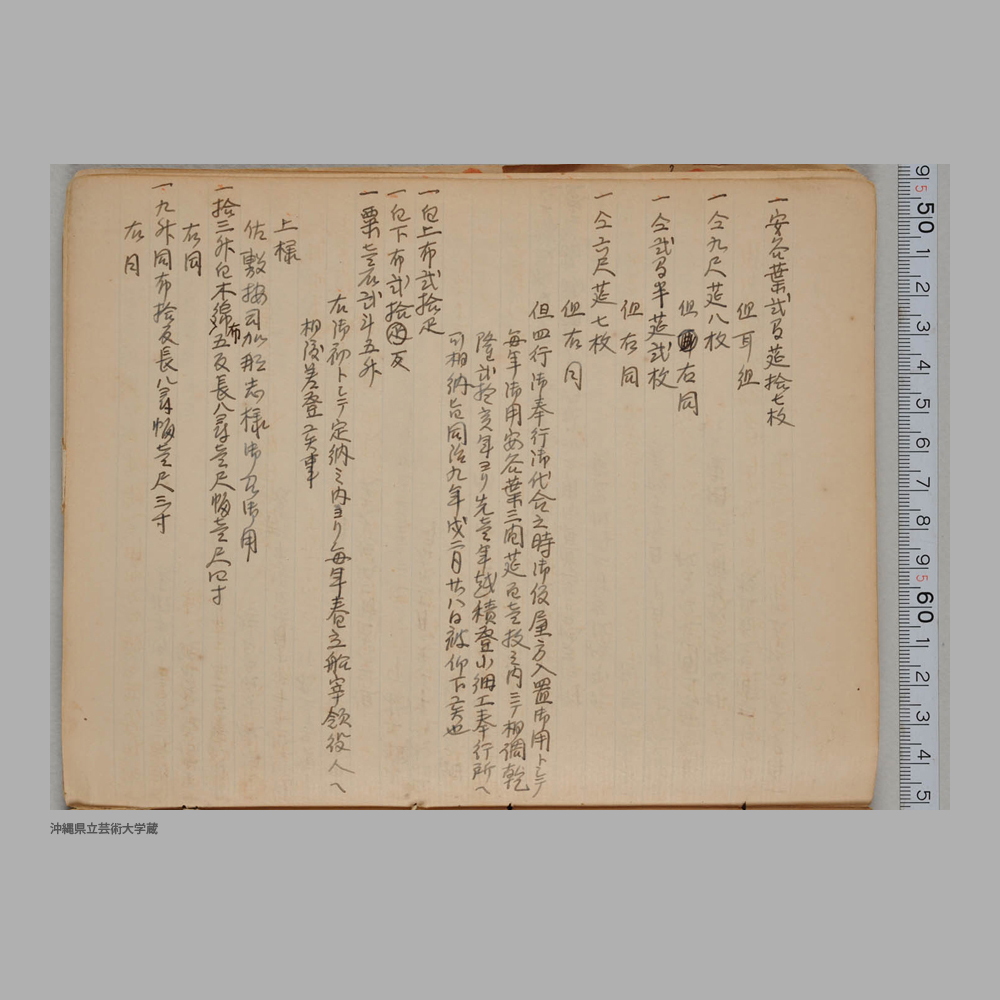 一安谷葉弐間莚拾七枚
但耳組
一仝九尺莚八枚
但右同
一仝弐間半莚弐枚
但右同
一仝六尺莚七枚
但右同
但四行御奉行御代合之時御仮屋方入置御用トシテ
毎年御用安谷葉三間莚百壱枚之内ニテ相調乾
隆弐拾亥年ヨリ先壱年越積登小細工奉行所ヘ
可相納旨同治九年戌二月廿八日被仰下候也
一白上布弐拾疋
一白下布弐拾反
一粟壱石弐斗五升
右御初トシテ定納之内ヨリ毎年春立船宰領役人ヘ
相渡差登候事
上様
佐敷按司加那志様御方御用
一拾三升白木綿布五反長八尋壱尺幅壱尺四寸
右同
一九升同布拾反長八尋幅壱尺三寸
右同
沖縄県立芸術大学蔵
9 5 50 1 2 3 4 5 6 7 8 9 5 60 1 2 3 4 5